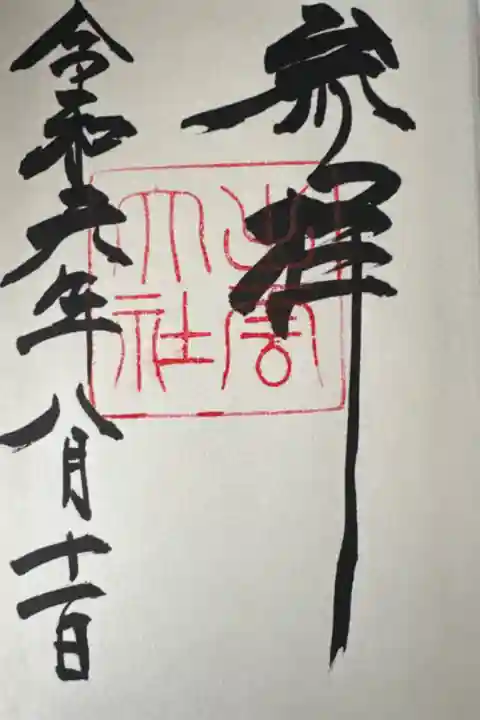 参拝
出雲
大社
令和六年八月十一日